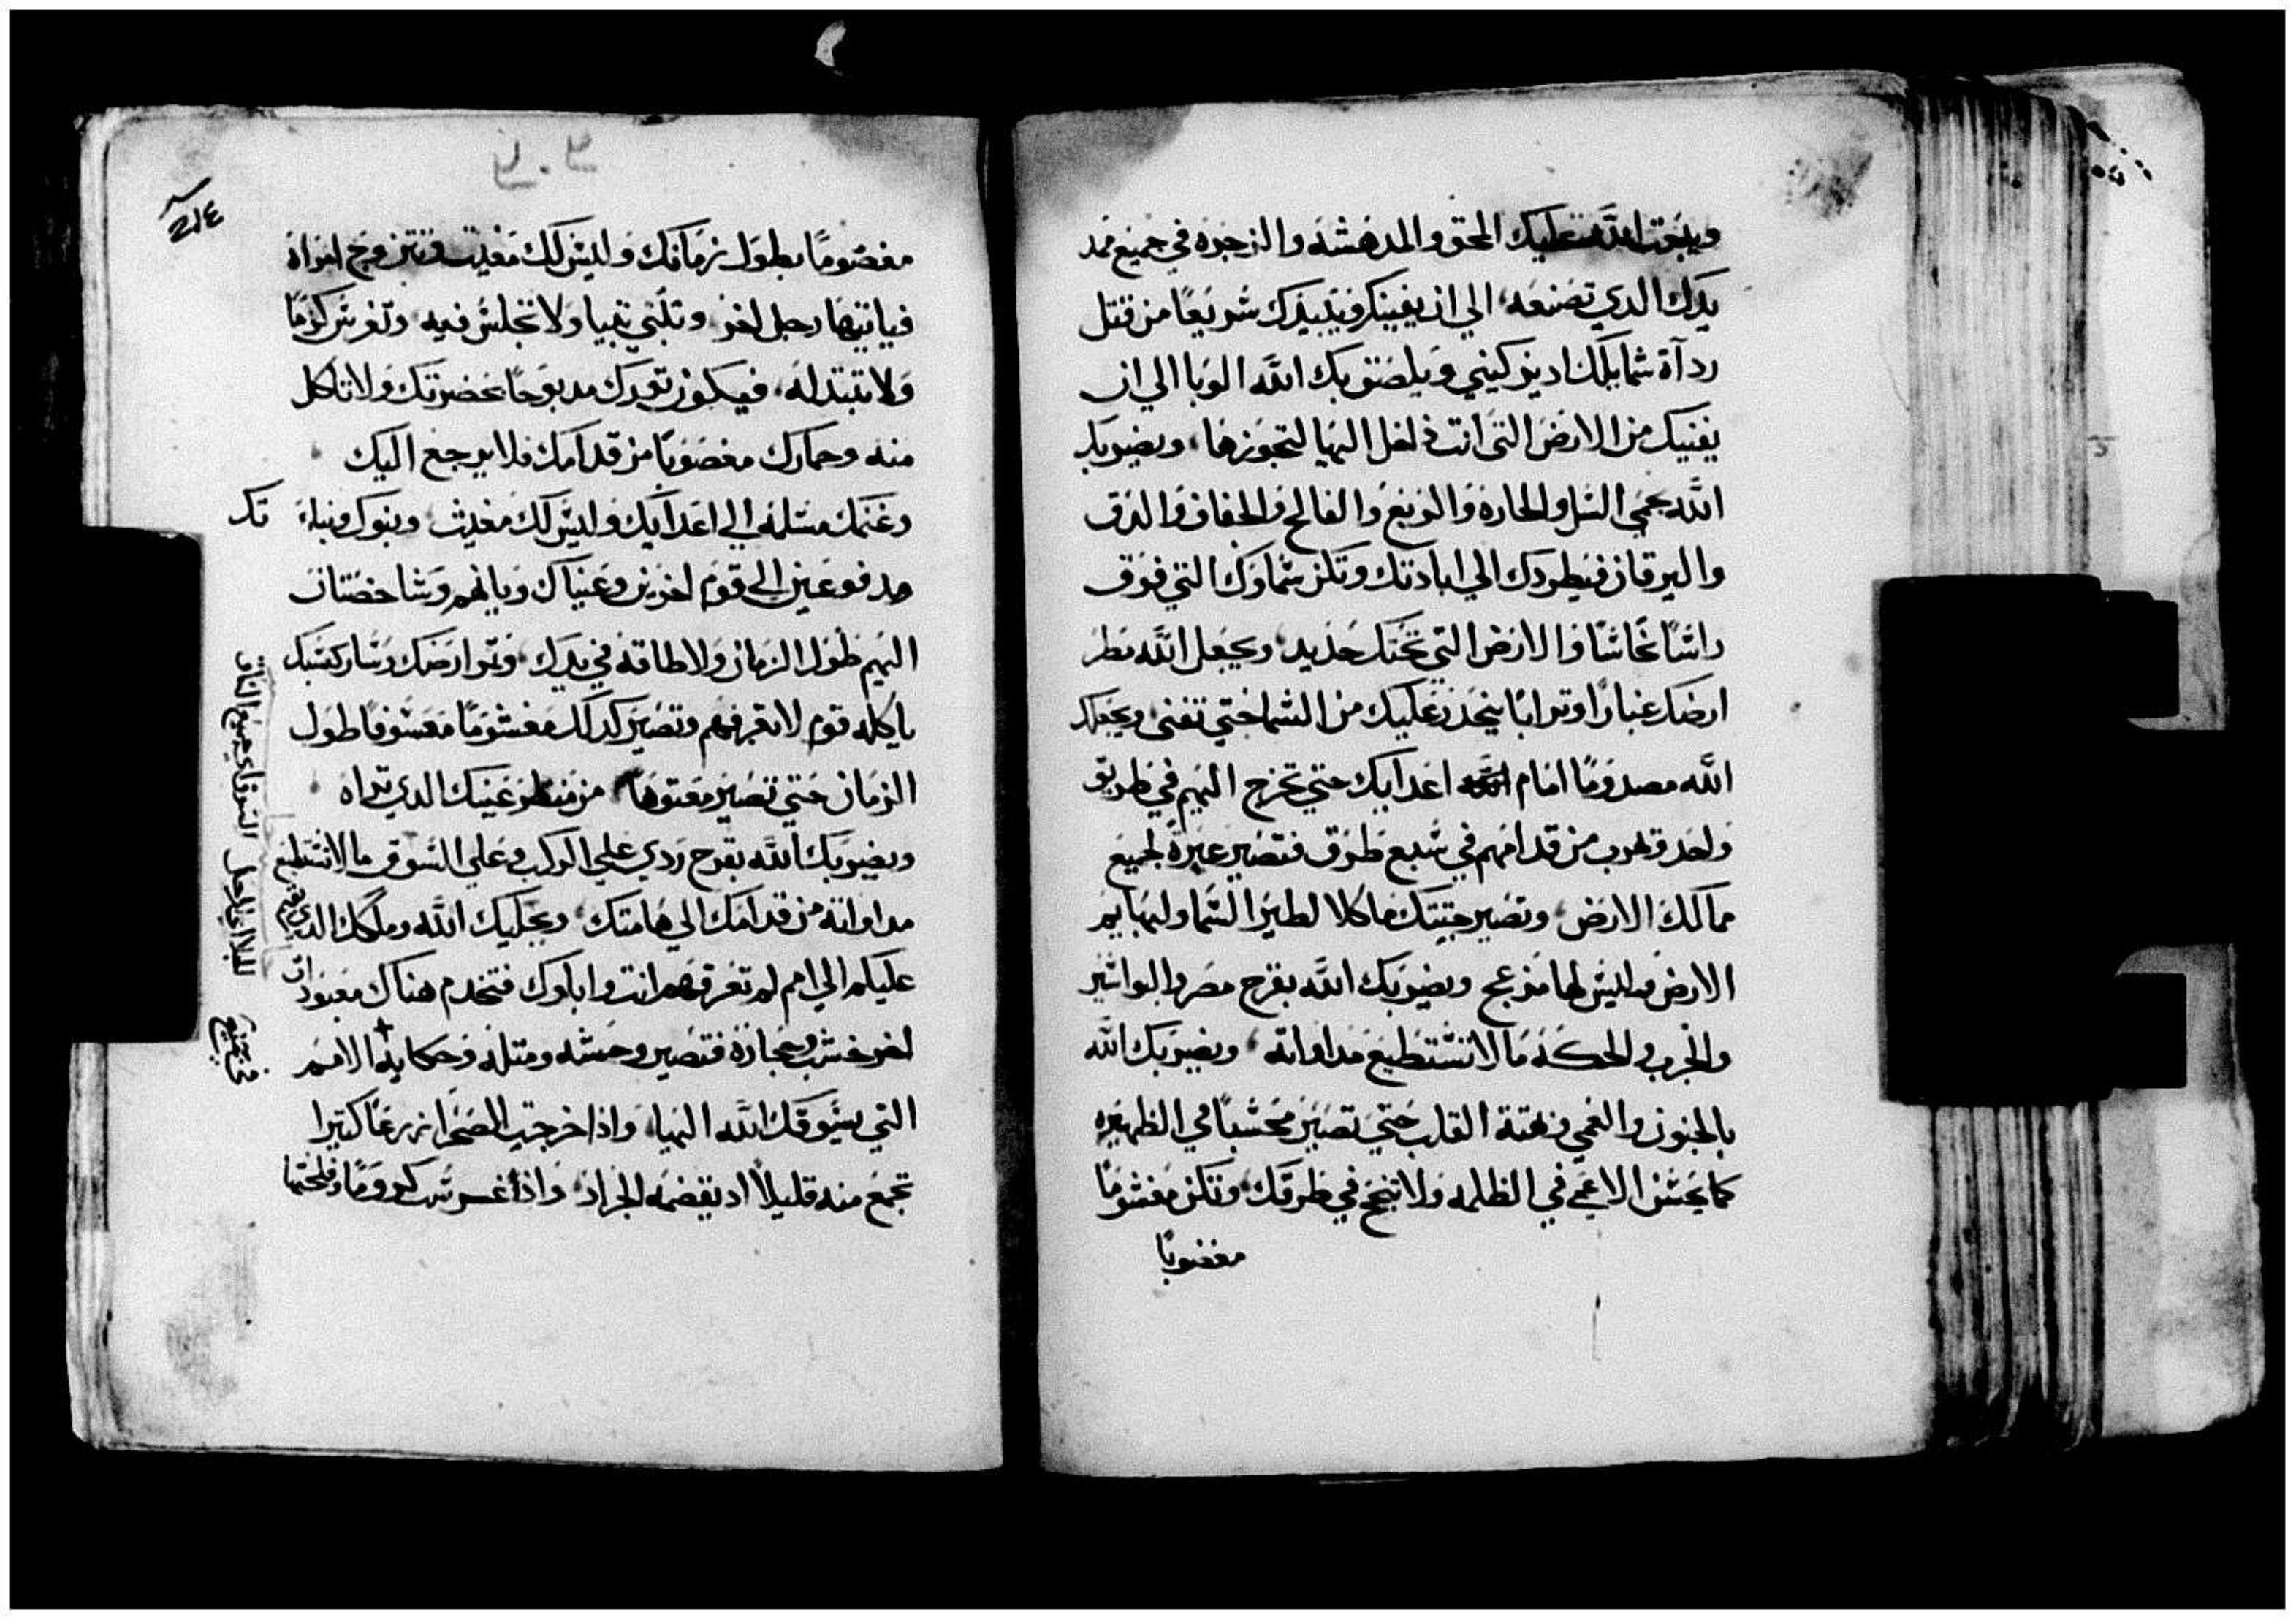 ويبعت الله عليك المحق والمدهشه والزجره في جميع ممد
يدك الدي تصنعه الي ان يفنيك ويبيدك شريعًا من قتل
ردآة شمايلك اد يتركيني ويلصق بك الله الوبا الي ان
يفنيك من الارض التي انت داخل اليها لتجوزها ويضربك
الله بحمي السل والحاره والربع والفالج والجفاف والدق
واليرقان فيطردك الي ابادتك وتكن شماوك التي فوق
راشك نحاشًا والارض التي تحتك حديد ويجعل الله مطر
ارضك غبارًا وترابًا ينحدر عليك من الشما حتي تفني ويجعلك
الله مصدومًا امام اعدايك حتي تخرج اليهم في طريق
واحد وتهرب من قدامهم في شبع طرق فتصير عبرة لجميع
ممالك الارض وتصير جتتك ماكلا لطير الشما ولبهايم
الارض وليس لها مزعج ويضربك الله بقرح مصر والبواشير
والجرب والحكه ما لا تشتطيع مداواته ويضربك الله
بالجنون والعمي وبهتة القلب حتي تصير محشبًا في الظهيره
كما يحشش الاعمي في الظلمه ولا تنجح في طرقك وتكن مغشومًا
مغضوبا
٢١٤
مغصومًا بطول زمانك وليس لك مغيت وتتزوج امراة
فياتيها رجل اخر وتبني بيتا ولا تجلس فيه وتغرس كرمًا
ولا تبتدله فيكون تورك مدبوحًا بحضرتك ولا تاكل
منه وحمارك مغصوبًا من قدامك فلا يرجع اليك
وغنمك مسلمه الي اعدايك وليس لك مغيث وبنوك وبنا تك
مدفوعين الي قوم اخرين وعيناك ويانهم وشاخصتان
اليهم طول الزمان ولا طاقه في يدك وتمر ارضك وساير كسبك
ياكله قوم لا تعرفهم وتصير كدلك مغشومًا معسوفًا طول
الزمان حتي تصير معتوهًا من منظر عينيك الدي تراه
ويضربك الله بقرح ردي علي الركب وعلي السوق ما لا تستطيع
مداواته من قدامك الي هامتك ويجليك الله وملكك الدي تقيمه
عليكم الي امم لم تعرفهم انت واباوك فتخدم هناك معبودات
اخر خشب وحجارة فتصير وحشه ومتله وحكايه الامم
التي يسوقك الله اليها واذا خرجت الصحرا زرعًا كتيرا
تجمع منه قليلاً اد يقضمه الجراد واذا غرست كرومًا وفلحتها